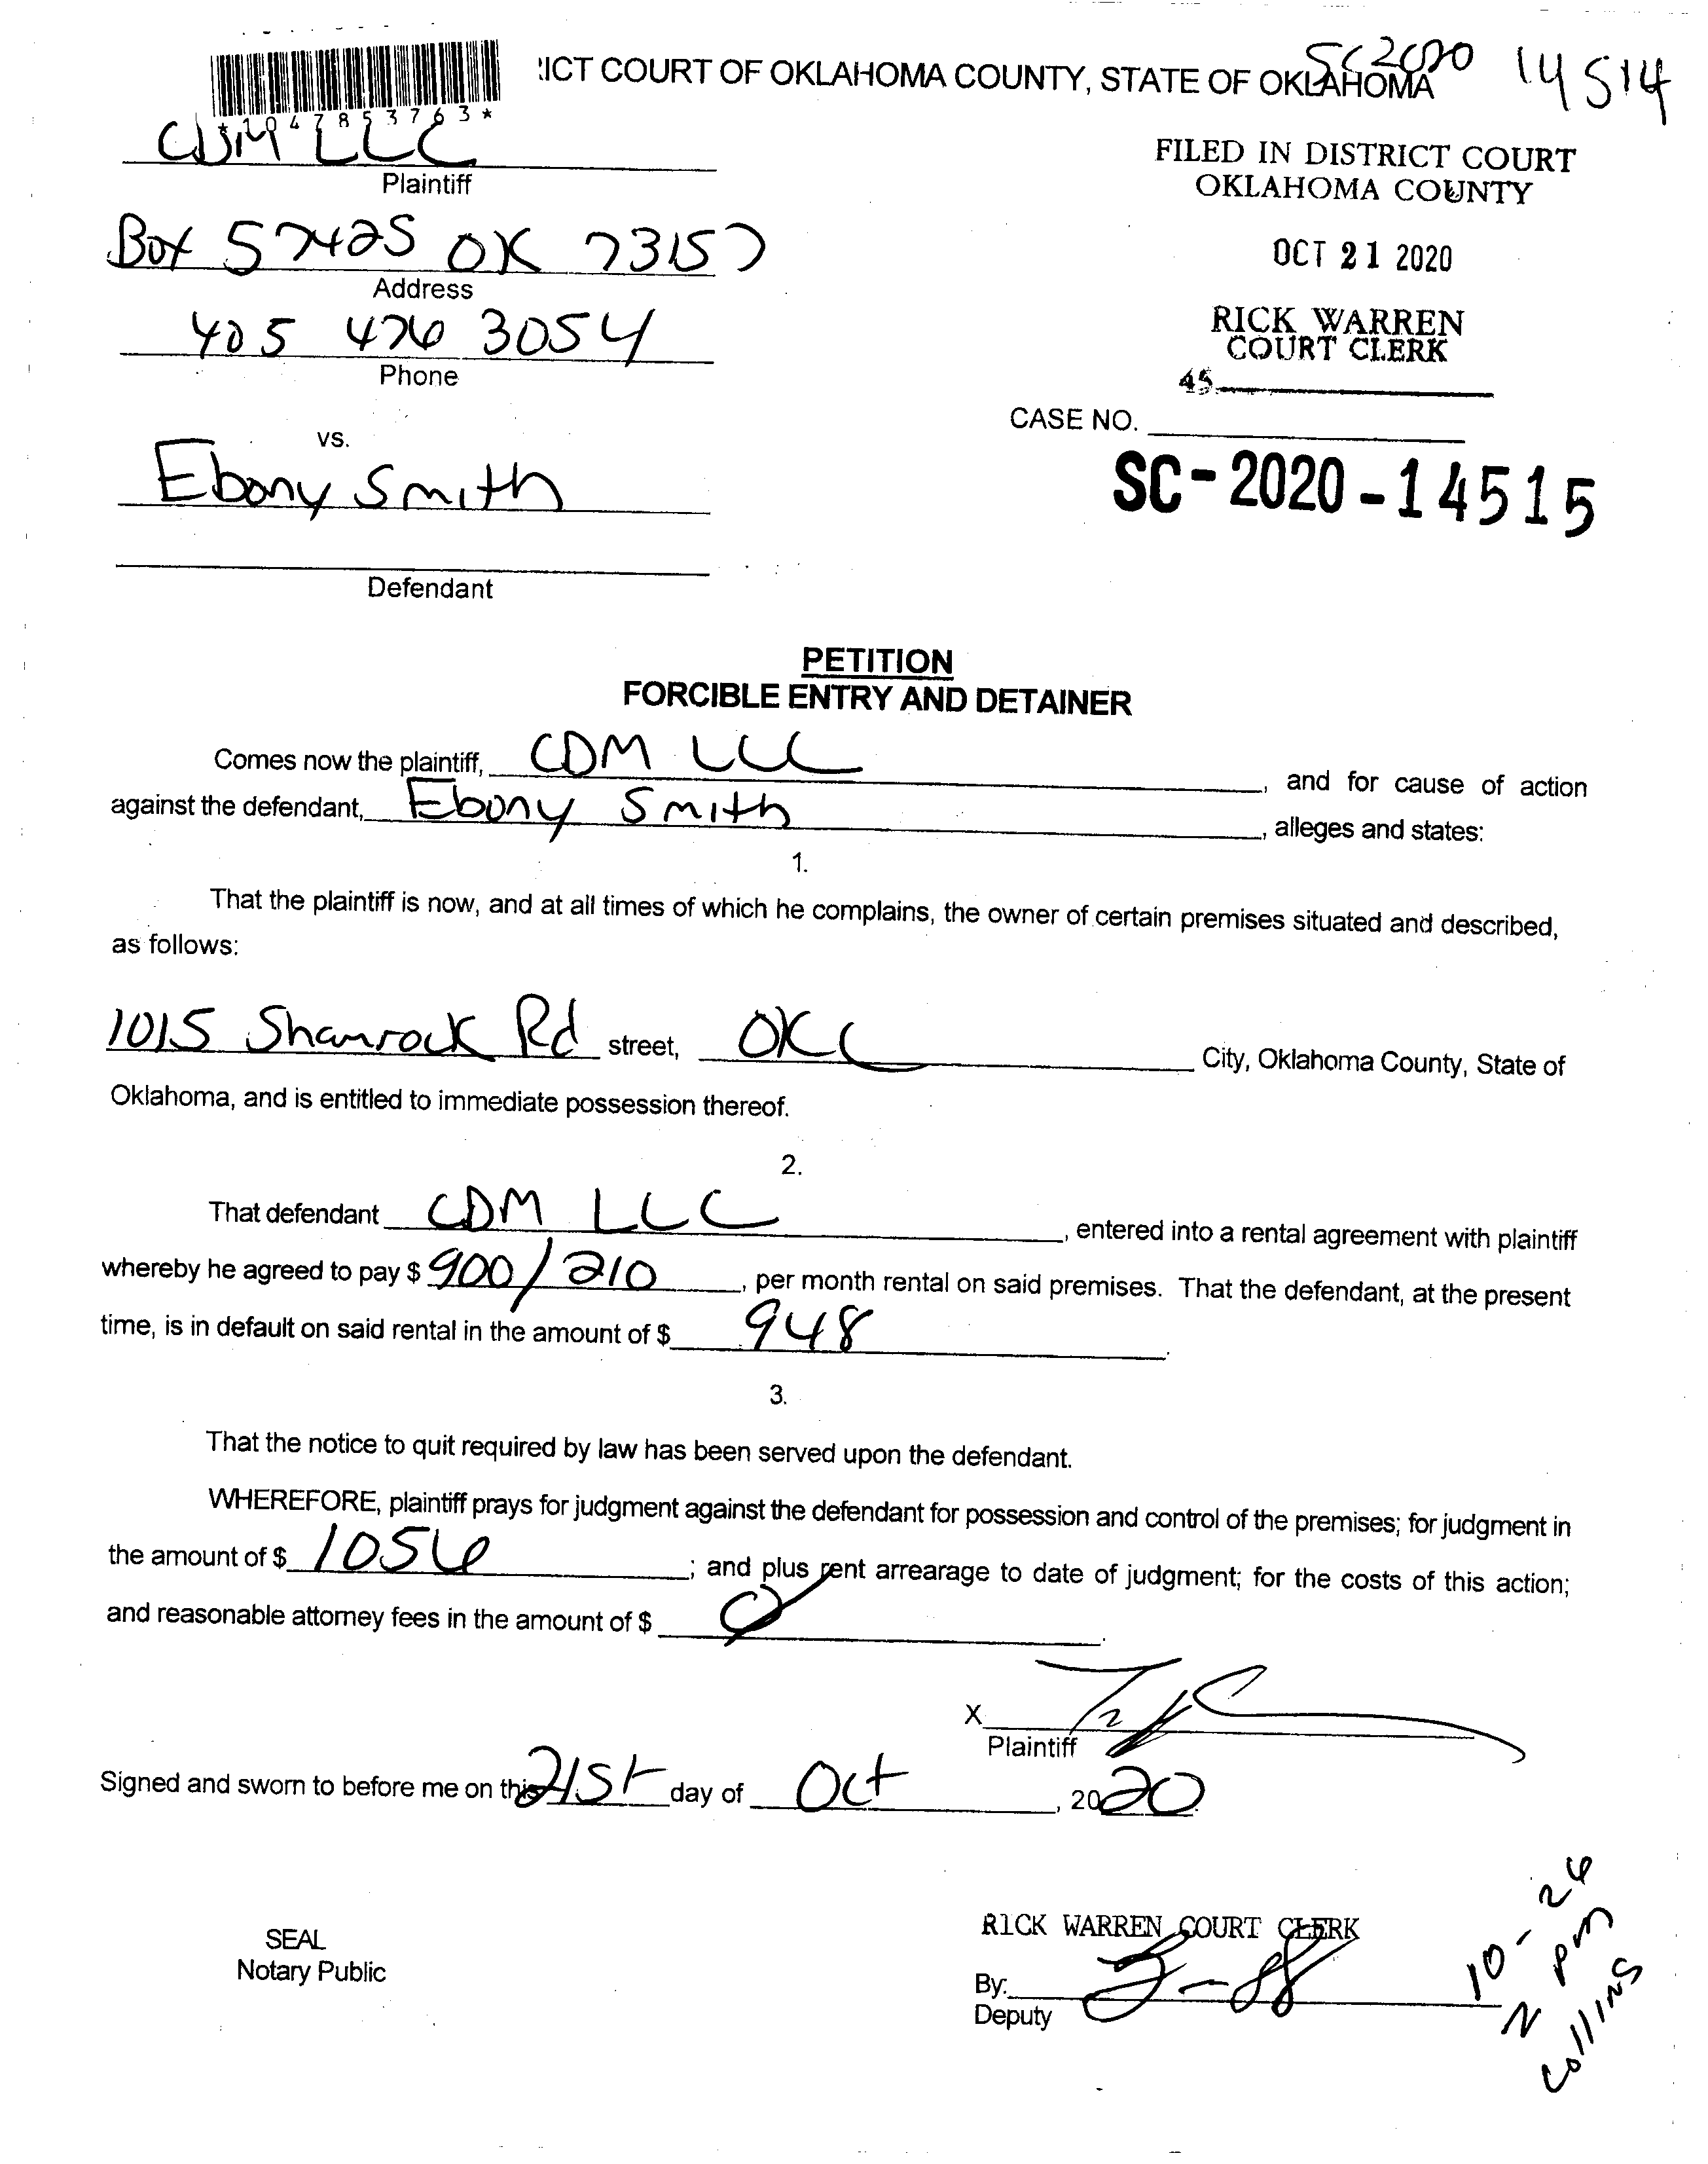 'ICT COURT OF OKLAHOMA COUNTY, STATE OF OKLAHOMA
SC2020 14514
*1047853763*
CDM LLC
Plaintiff
FILED IN DISTRICT COURT
OKLAHOMA COUNTY
Box 57425 OK 73157
Address
OCT 21 2020
405 476 3054
Phone
RICK WARREN
COURT CLERK
45
CASE NO.
vs.
Ebony Smith
SC-2020-14515
Defendant
PETITION
FORCIBLE ENTRY AND DETAINER
Comes now the plaintiff, CDM LLC, and for cause of action
against the defendant, Ebony Smith, alleges and states:
1.
That the plaintiff is now, and at all times of which he complains, the owner of certain premises situated and described,
as follows:
1015 Shamrock Rd street, OKC City, Oklahoma County, State of
Oklahoma, and is entitled to immediate possession thereof.
2.
That defendant CDM LLC, entered into a rental agreement with plaintiff
whereby he agreed to pay $ 900/210, per month rental on said premises. That the defendant, at the present
time, is in default on said rental in the amount of $ 948.
3.
That the notice to quit required by law has been served upon the defendant.
WHEREFORE, plaintiff prays for judgment against the defendant for possession and control of the premises; for judgment in
the amount of $ 1056; and plus rent arrearage to date of judgment; for the costs of this action;
and reasonable attorney fees in the amount of $ 0.
X
Plaintiff
Signed and sworn to before me on this 21st day of Oct, 2020
SEAL
Notary Public
RICK WARREN COURT CLERK
By:
Deputy
10-26
2 pm
Collins